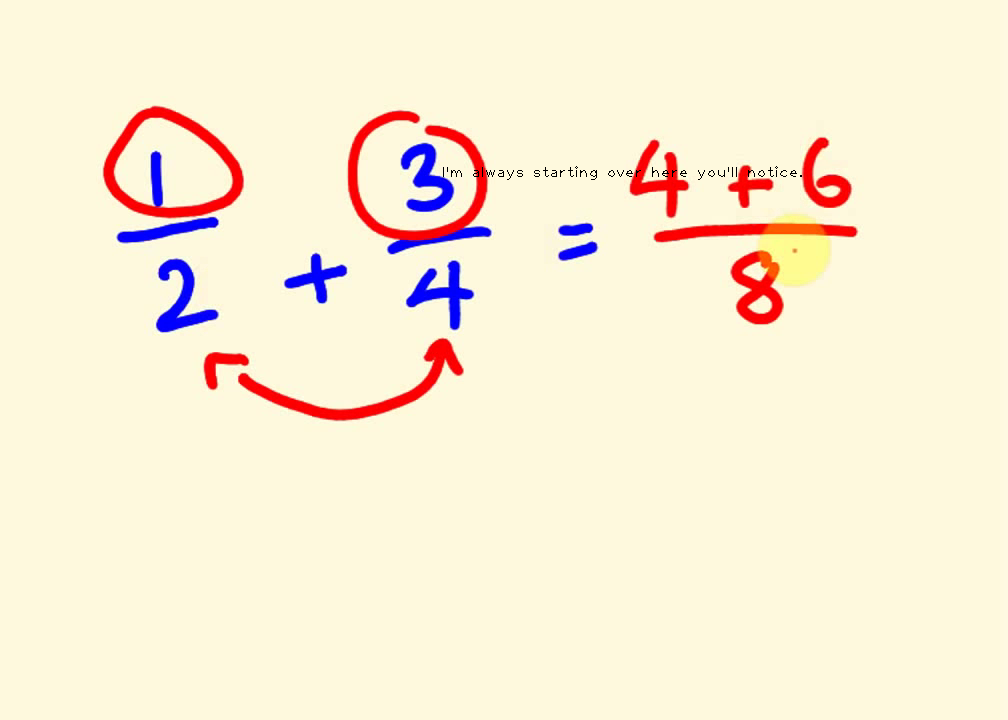 1/2 + 3/4 = (4 + 6)/8
I'm always starting over here you'll notice.